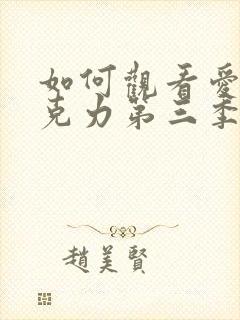 如何觀看愛
克力第三季
趙美賢